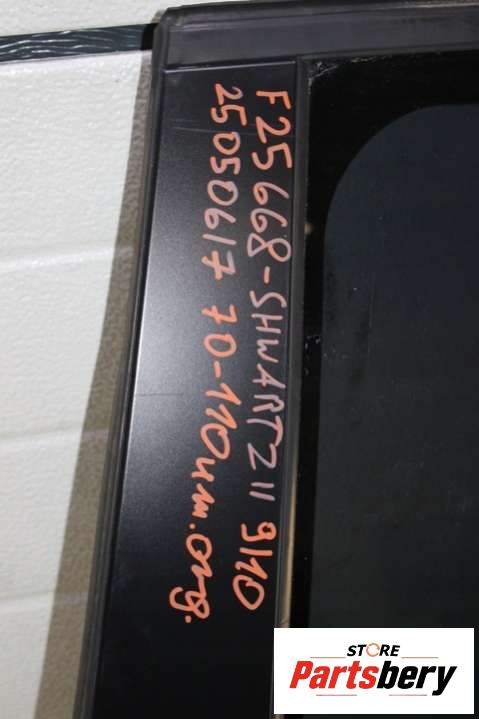 F25 668-SHWARTZ II 9/10
25050617 70-110um.ong.
STORE
Partsbery